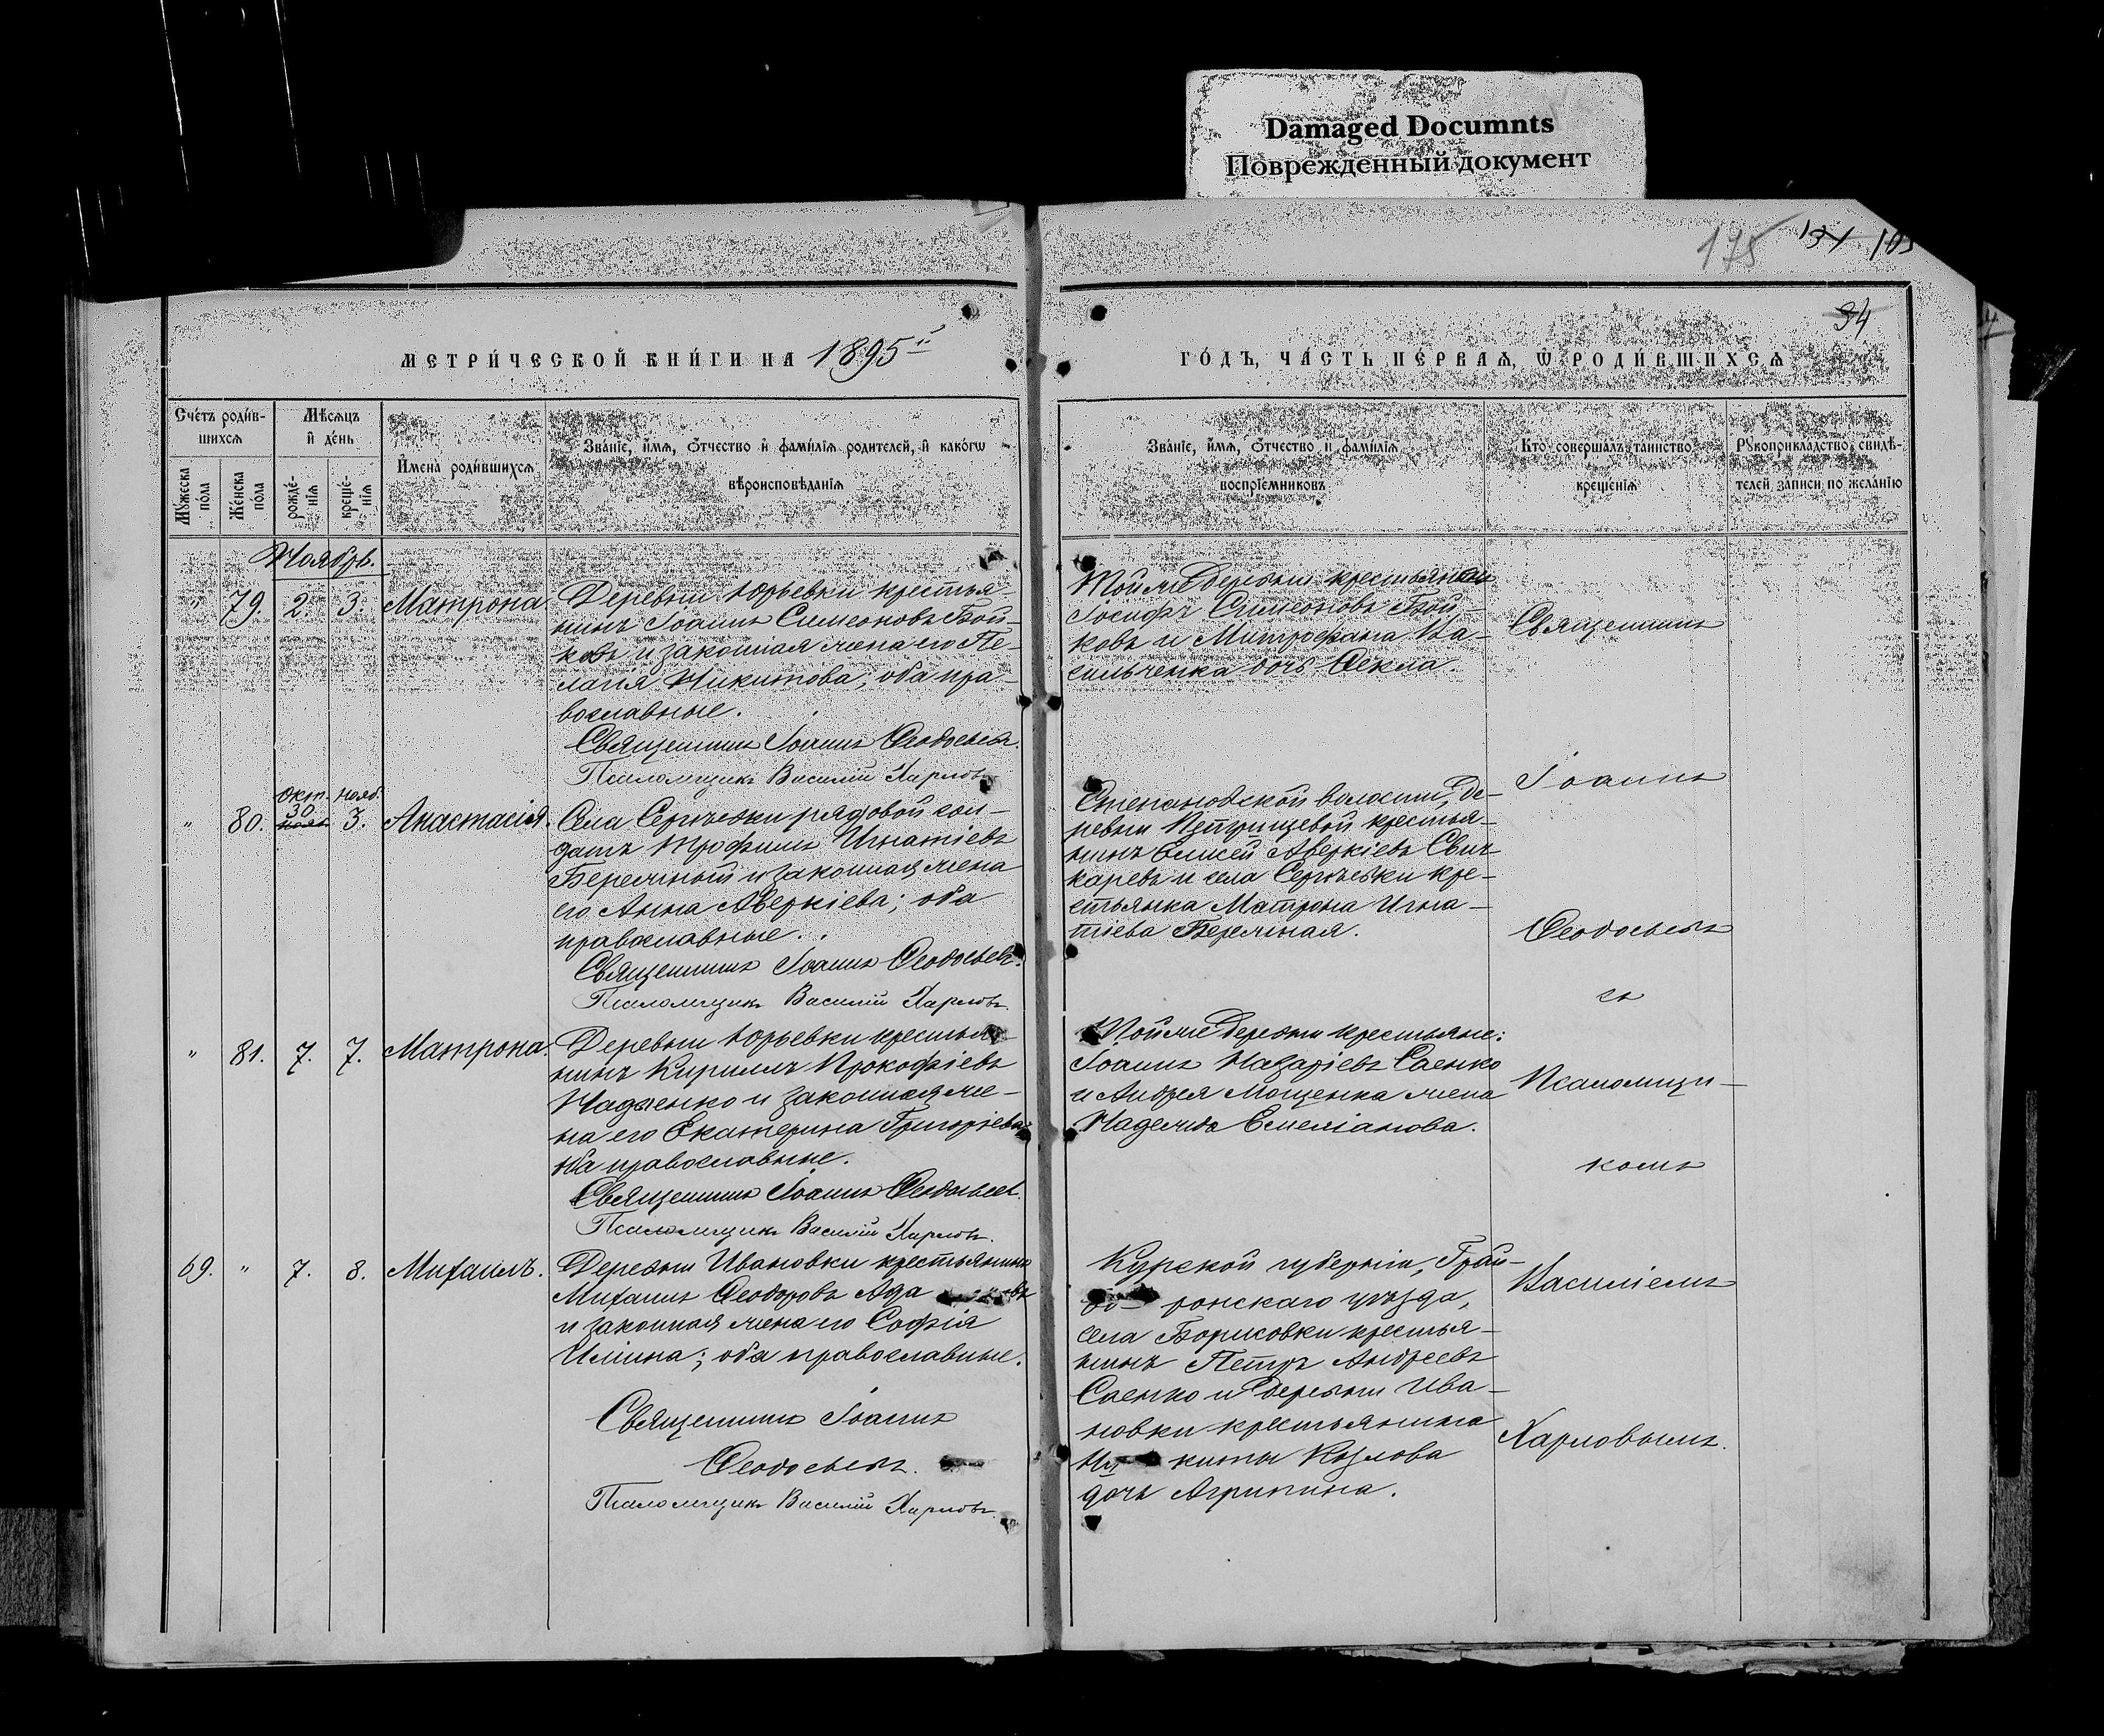 Damaged Documnts
Поврежденный документ
175 131 103
34
МЕТРИ́ЧЕСКОЙ КНИ́ГИ НА 1895й
ГО́ДЪ, ЧА́СТЬ ПЕ́РВАѦ, Ѡ РОДИ́ВШИХСѦ
Сче́тъ роди́в-
шихсѧ
Мѣ́сѧцъ
и҆ де́нь
И҆мена̀ роди́вшихсѧ
Зва́нїе, и҆́мѧ, ѻ҆́тчество и҆ фами́лїѧ родителей, и҆ како́гѡ
вѣроисповѣ́данїѧ
Зва́нїе, и҆́мѧ, ѻ҆́тчество и҆ фами́лїѧ
воспрїе́мниковъ
Кто̀ соверша́лъ та́инство
креще́нїѧ
Рꙋкоприкла́дство свидѣ́-
телей за́писи по жела́нїю
Мꙋ́жеска
по́ла
Же́нска
по́ла
рожде́-
нїѧ
креще́-
нїѧ
Ноябрь.
" 79. 2. 3. Матрона.
Деревни Юрьевки крестья-
нинъ Іоаннъ Симеоновъ Бой-
ковъ и законная жена его Пе-
лагія Никитова; оба пра-
вославные.
Священникъ Іоаннъ Ѳеодосьевъ.
Псаломщикъ Василій Харловъ
Той же деревни крестьянинъ
Іосифъ Симеоновъ Бой-
ковъ и Митрофана Ва-
сильченка дочь Ѳекла.
окт. нояб.
" 80. 30. 3. Анастасія.
Села Сергѣевки рядовой сол-
датъ Трофимъ Игнатіевъ
Бережный и законная жена
его Анна Аверкіева; оба
православные.
Священникъ Іоаннъ Ѳеодосьевъ.
Псаломщикъ Василій Харловъ
Степановской волости, де-
ревни крестья-
нинъ Елисей Аверкіевъ Свич-
каревъ и села Сергѣевки кре-
стьянка Матрона Игна-
тіева Бережная.
" 81. 7. 7. Матрона.
Деревни Юрьевки крестья-
нинъ Кириллъ Прокофіевъ
и законная же-
на его Екатерина Григоріева
оба православные.
Священникъ Іоаннъ Ѳеодосьевъ.
Псаломщикъ Василій Харловъ.
Той же деревни крестьяне:
Іоаннъ Назаріевъ Саенко
и Андрея Мощенка жена
Надежда Емеліанова.
69. " 7. 8. Михаилъ.
Деревни Ивановки крестьянинъ
Михаилъ Ѳеодоровъ Ада
и законная жена его Софія
Иліина; оба православные.
Священникъ Іоаннъ
Ѳеодосьевъ.
Псаломщикъ Василій Харловъ.
Курской губерніи, Грай-
воронскаго уѣзда,
села Борисовки крестья-
нинъ Петръ Андреевъ
Саенко и деревни Ива-
новки крестьянина
Козлова
дочь Агрипина.
Священникъ
Іоаннъ
Ѳеодосьевъ
съ
Псаломщи-
комъ
Василіемъ
Харловымъ.